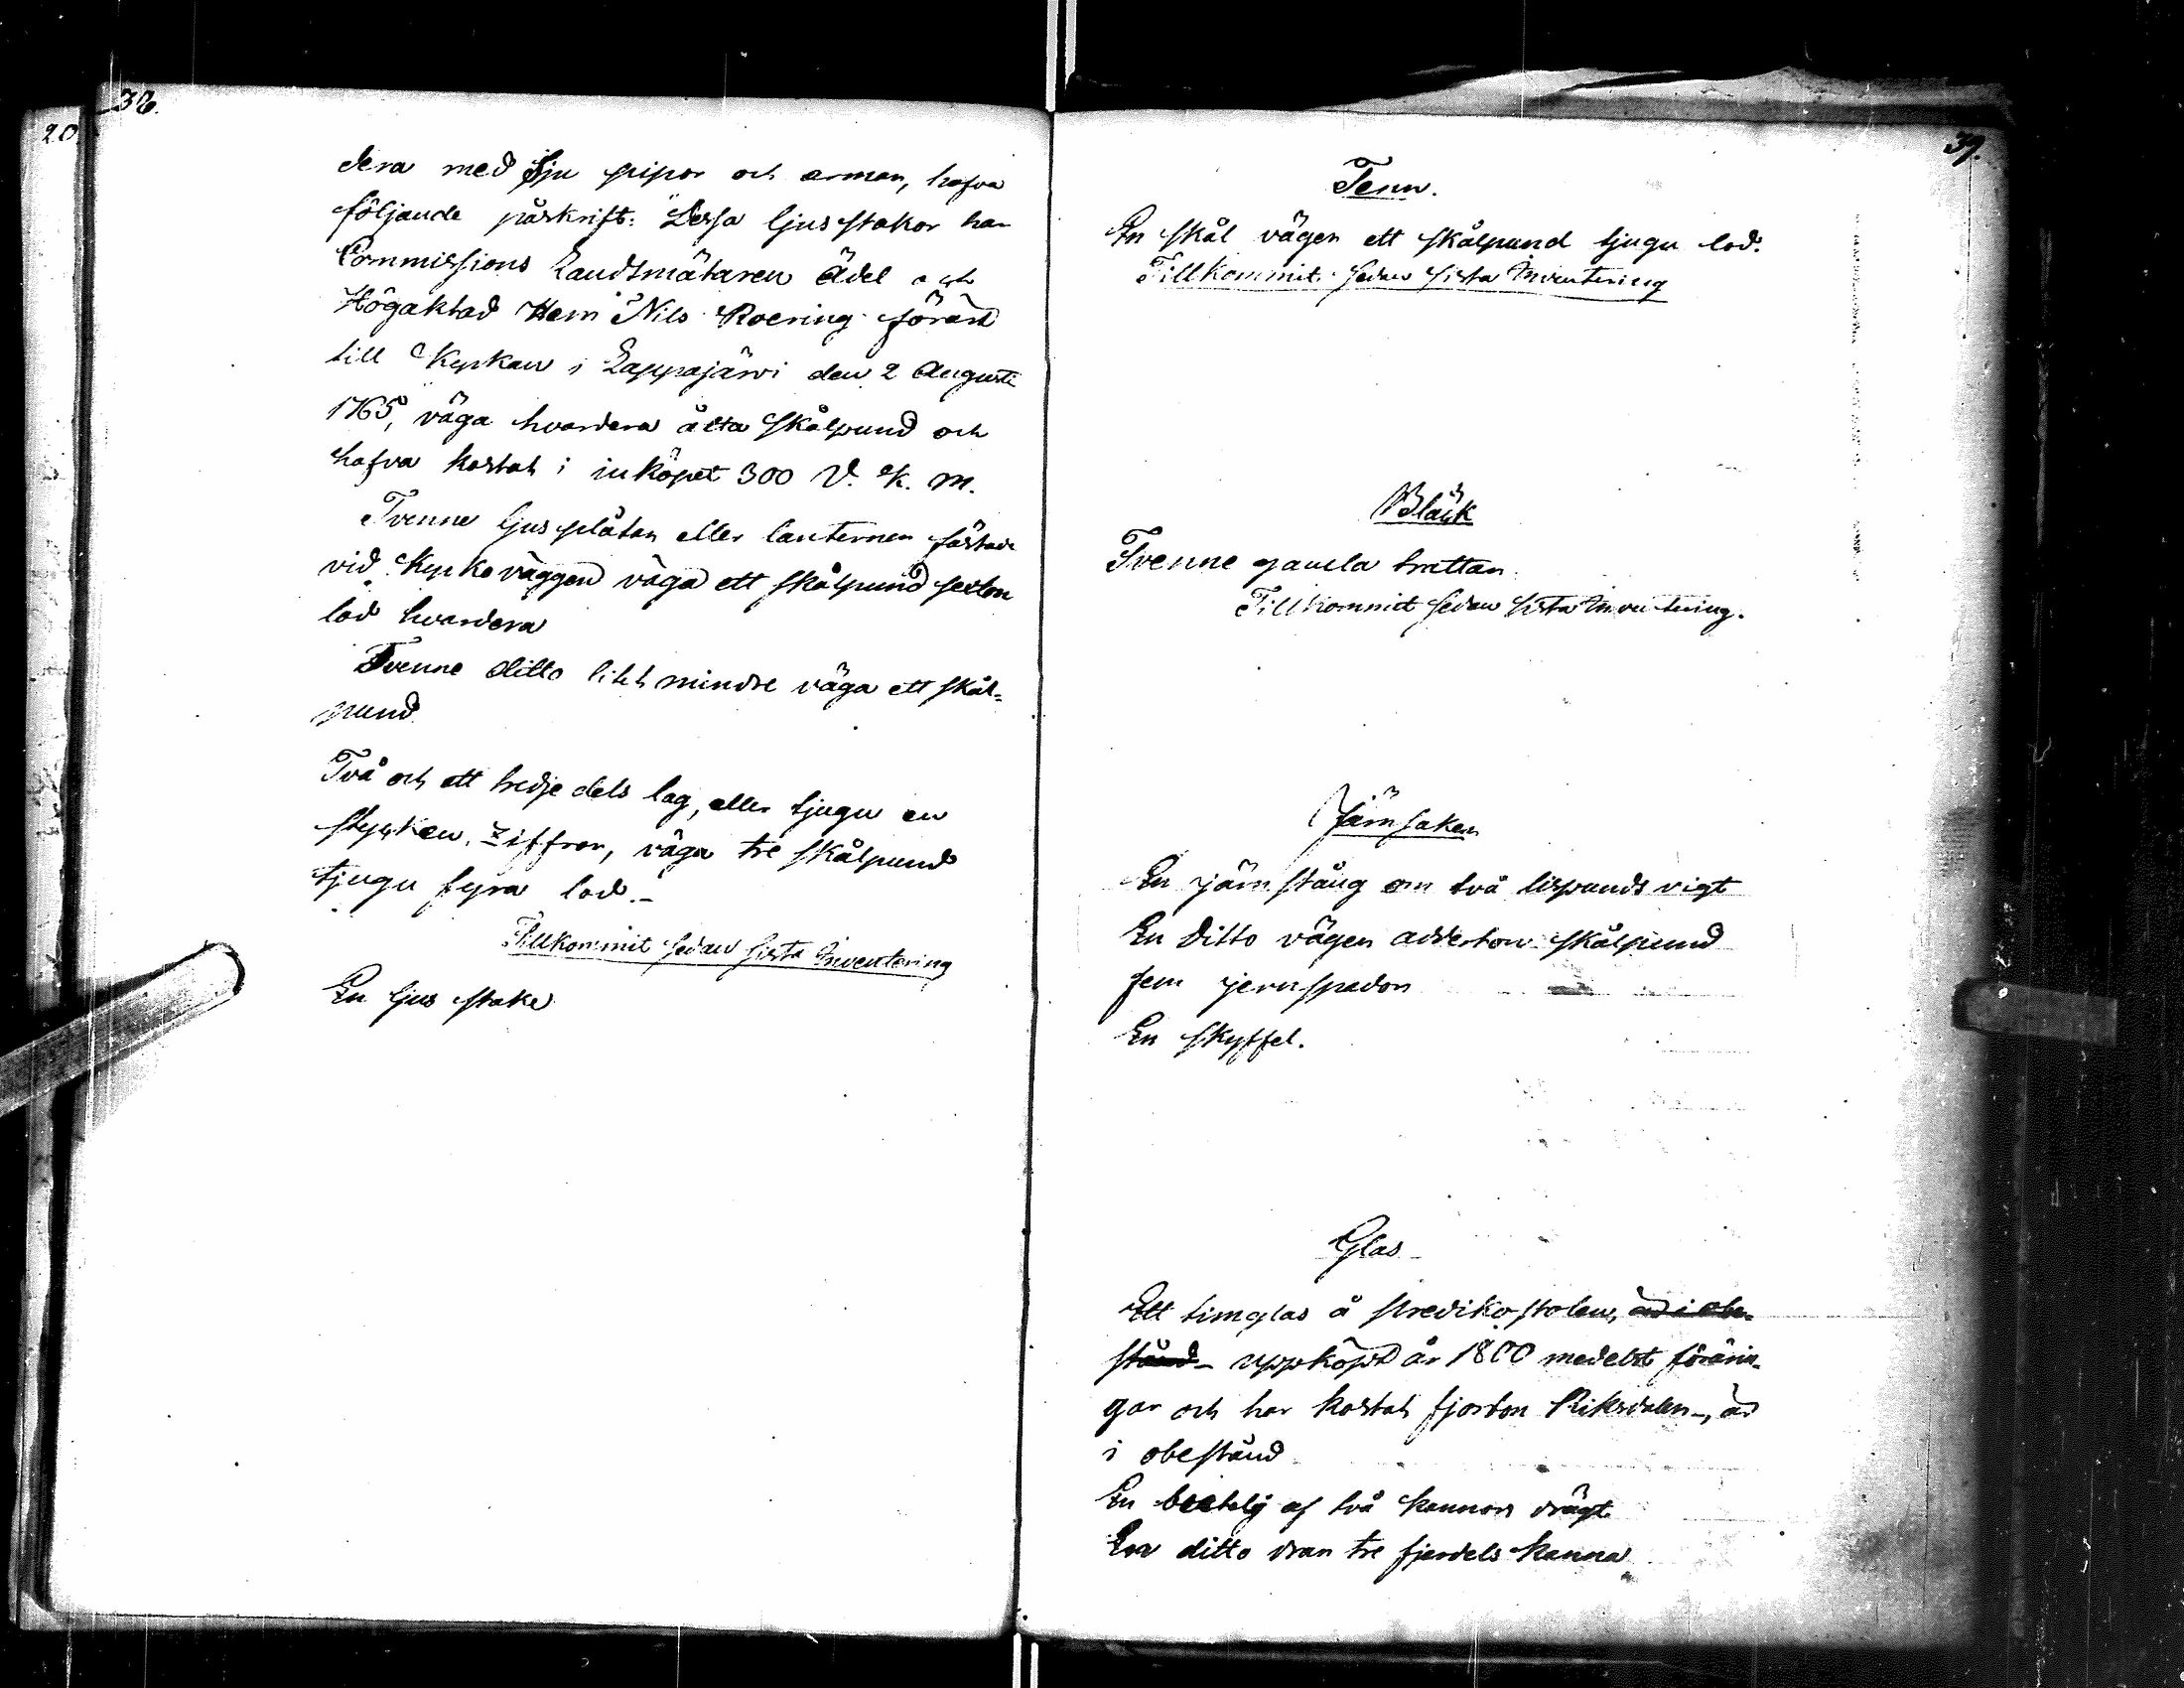 38.
20
dera med sju pipor och armar, hafva
följande påskrift: Dessa ljusstakor har
Commissions Landtmätaren Ädel och
Högaktad Herr Nils Roering förärt
till Kyrkan i Lappajärvi den 2 Augusti
1765, väga hvardera åtta skålpund och
hafva kostat i inköpet 300 D. K. M.
Tvenne ljusplåtar eller lanternor fästade
vid Kyrkoväggen väga ett skålpund sexton
lod hvardera
Tvenne ditto litet mindre väga ett skål-
pund
Två och ett tredje dels lag, eller tjugu en
stycken, Ziffror, väga tre skålpund
tjugu fyra lod.-
Tillkommit sedan sista Inventering
En ljus stake
39.
Tenn.
En skål väger ett skålpund tjugu lod.
Tillkommit sedan sista Inventering
Bläck
Tvenne gamla trattar.
Tillkommit sedan sista Inventering.
Järnsaker
En järnstång om två lispunds vigt
En Ditto väger aderton skålpund
fem jernspador
En skyffel.
Glas
Ett timglas å Predikostolen, är i obe-
stånd- uppköpt år 1800 medelst förärin-
gar och har kostat fjorton Riksdaler-, är
i obestånd
En butelj af två kannors drägt
En ditto dran tre fjerdels kanna